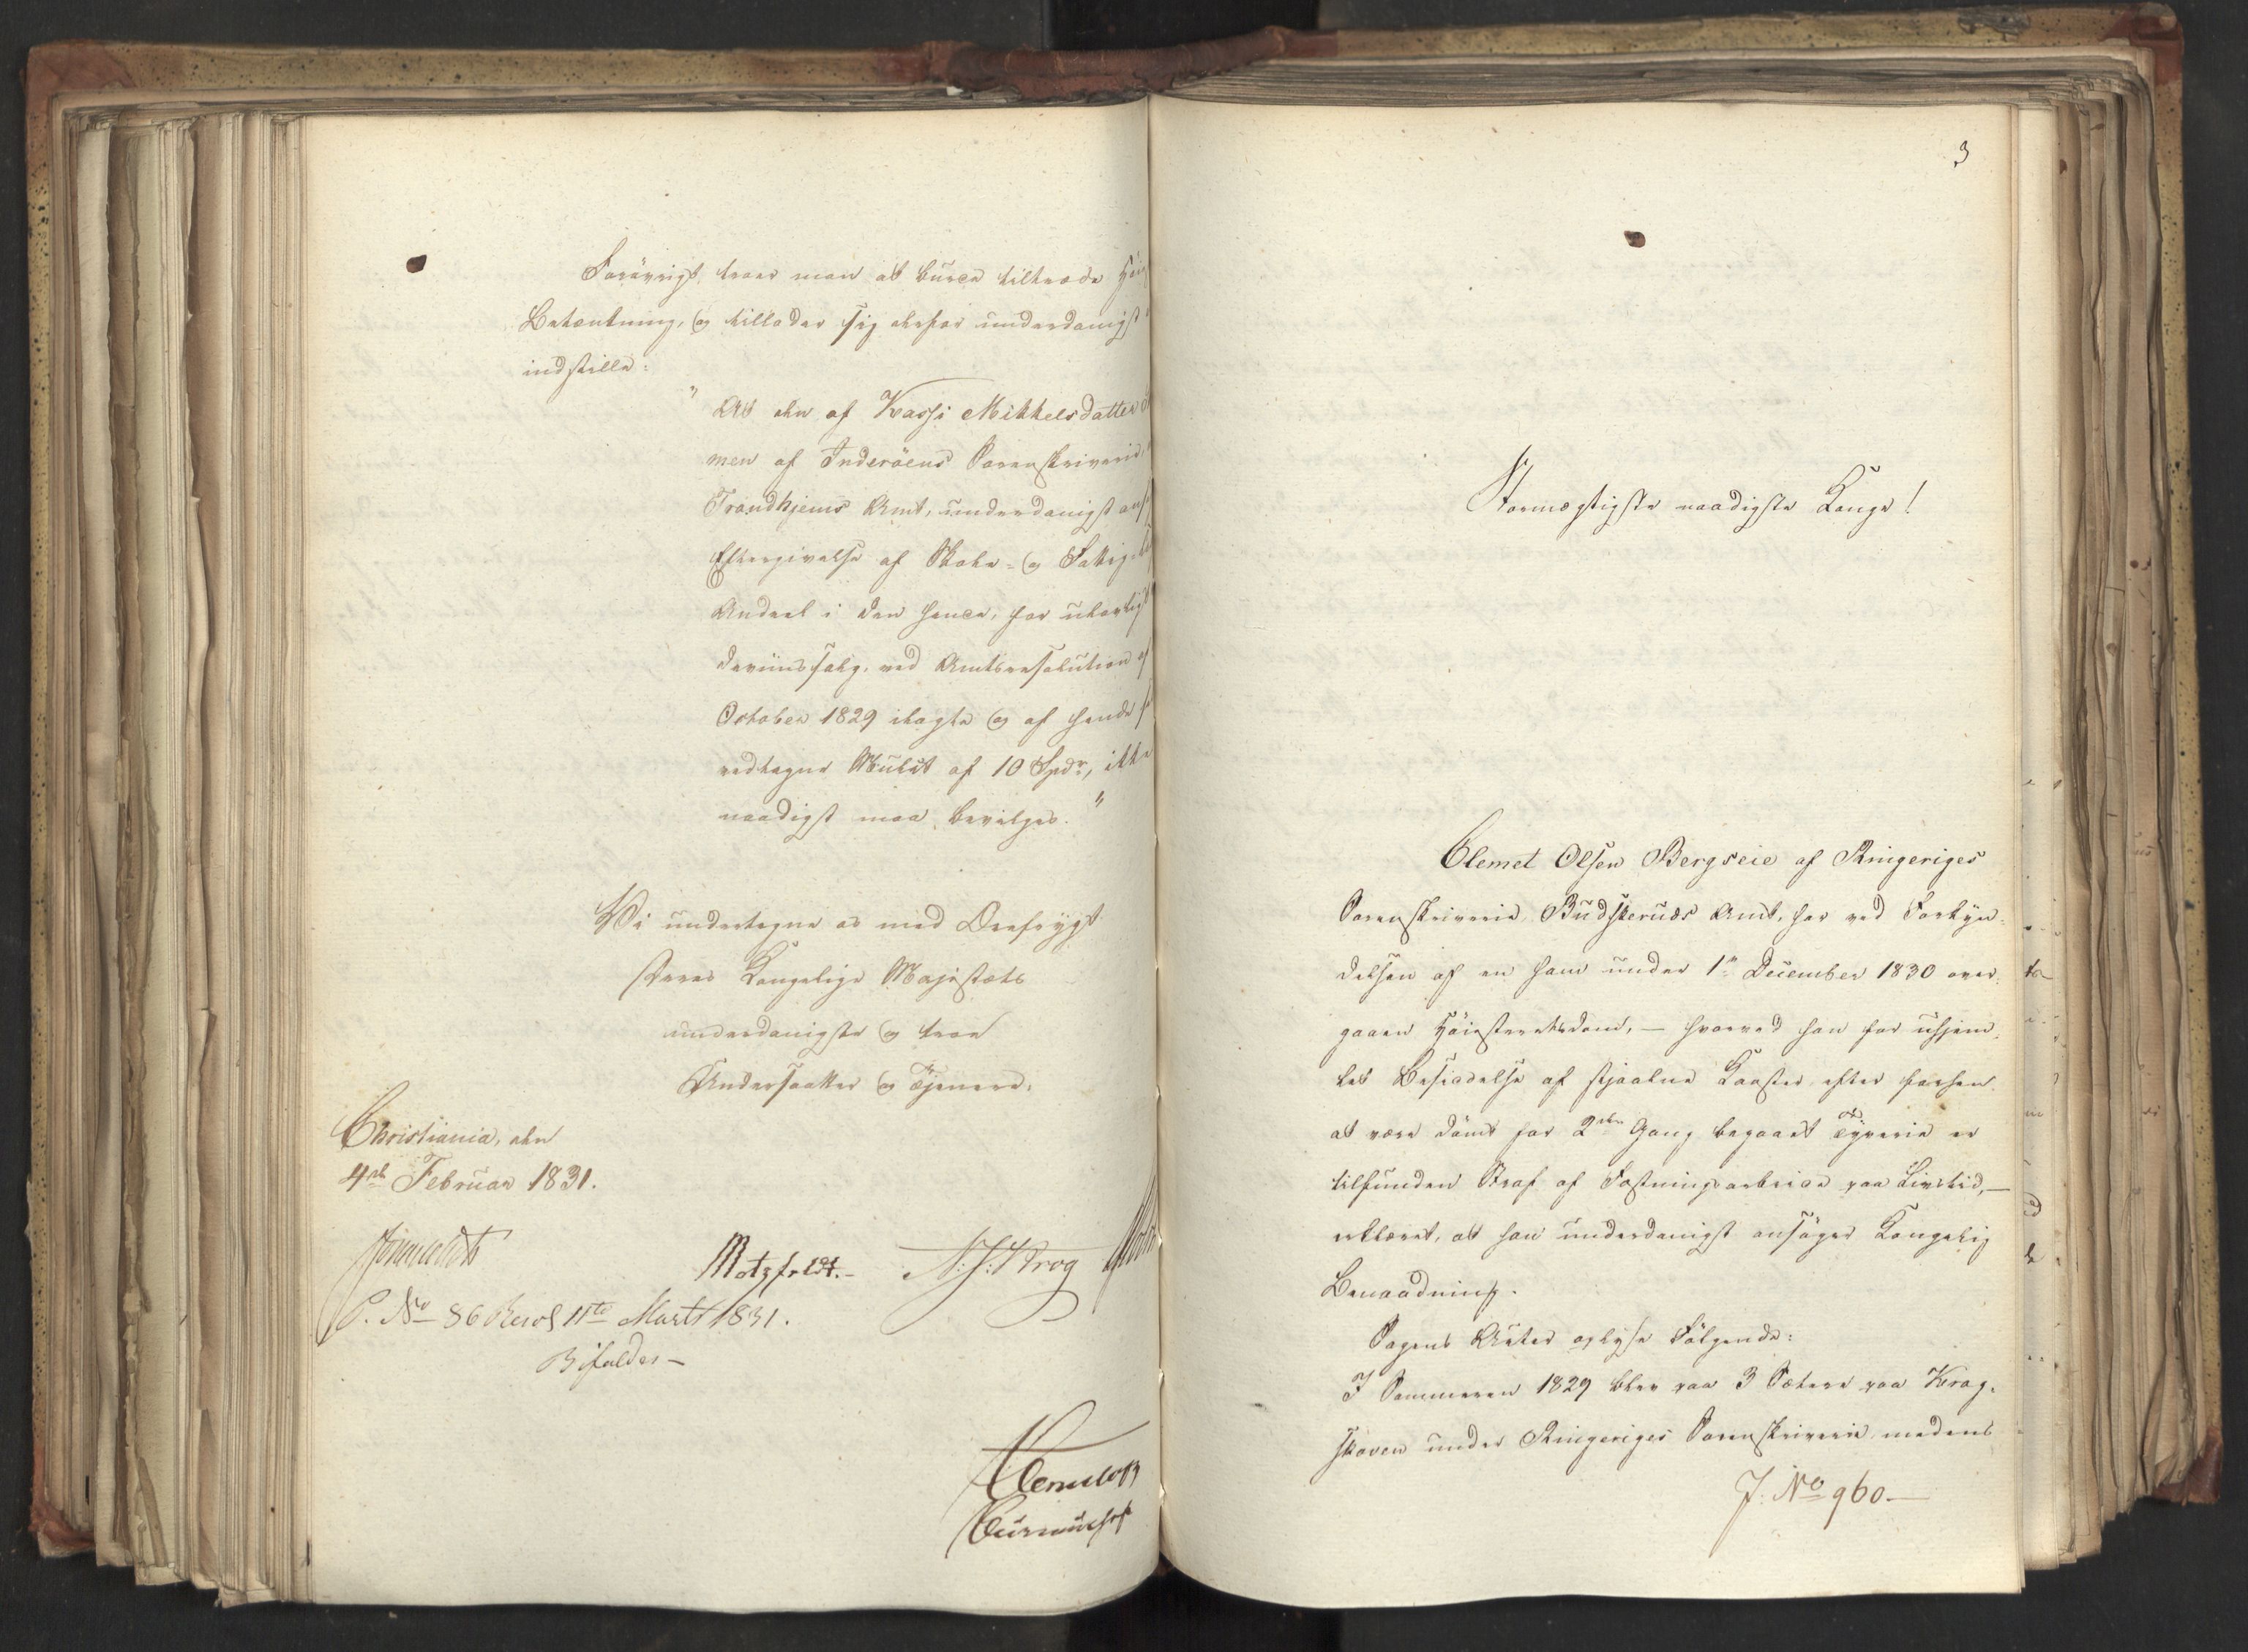 Forøvrigt troer man at burde tiltræde
Betænkning, og tillader sig derfor underdanigst
indstille:
"At den af Kassi Mikkelsdatter
men af Inderöens Sorenskriverie,
Trondhjems Amt, underdanigst
Eftergivelse af Skole- og Fattig-
Andeel i den hende, for ulovligt
Brændeviinssalg, ved Amtsresolution af
October 1829 ilagte og af hende
vedtagne Mulct af 10 Spdr, ikke
naadigst maa bevilges."
Vi undertegne os med Ærefrygt
Deres Kongelige Majestæts
underdanigste og troe
Undersaatter og Tjenere,
Christiania, den
4de Februar 1831.
Motzfeldt.- N: J: Krog
P. No 86 Resol 11te Marts 1831.
Bifaldes -
3
Stormægtigste naadigste Konge!
Clemet Olsen Bergseie af Ringeriges
Sorenskriverie, Budskeruds Amt, har ved Forkyn-
delsen af en ham under 1ste December 1830 over-
gaaen Høiesteretsdom, — hvorved han for uhjem-
let Besiddelse af stjaalne Koster efter forhen
at være dömt for 2den Gang begaaet Tyverie er
tilfunden Straf af Fæstningsarbeide paa Livstid, —
erklæret, at han underdanigst ansöger Kongelig
Benaadning.
Sagens Acter oplyse Fölgende:
I Sommeren 1829 blev paa 3 Sætere paa Krog-
skoven under Ringeriges Sorenskriverie, medens
J: No 960.—